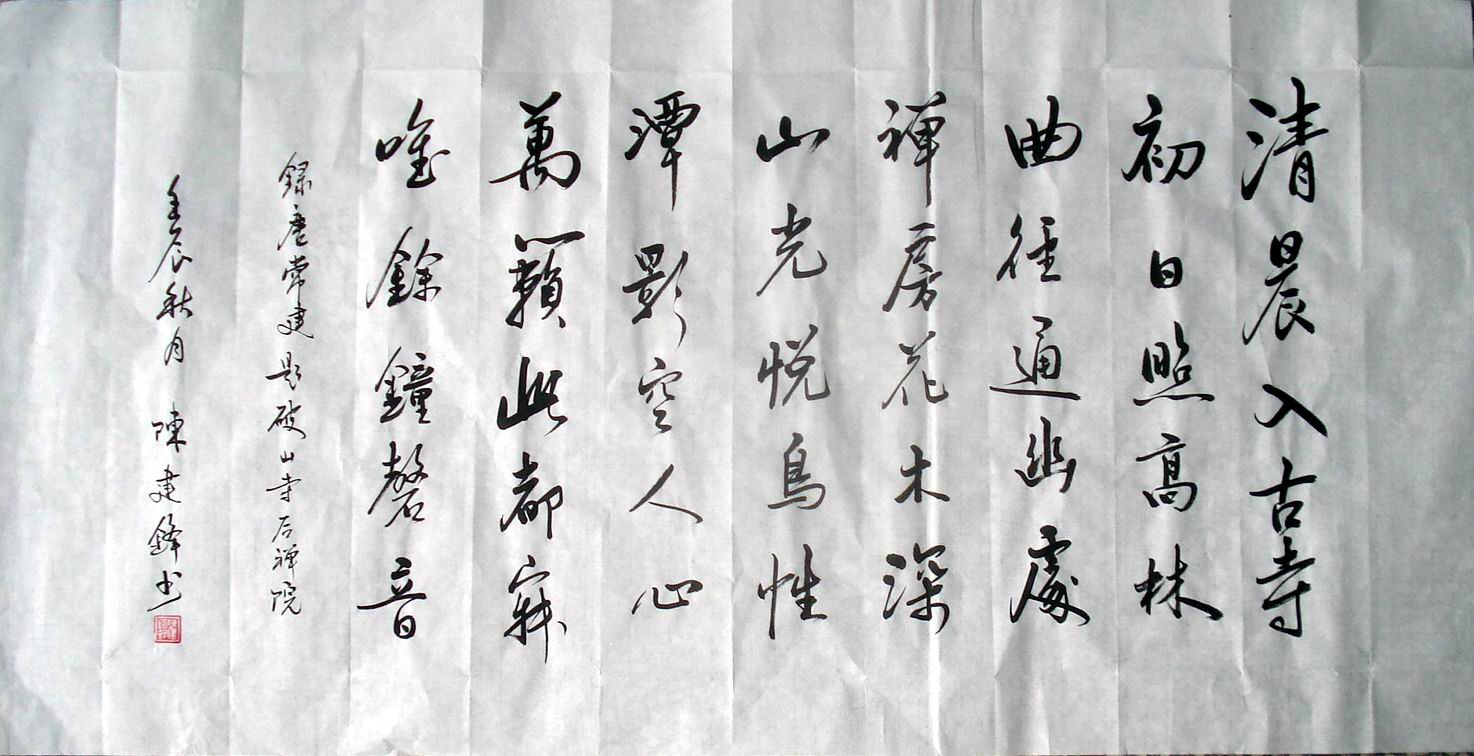 清晨入古寺
初日照高林
曲径通幽處
禅房花木深
山光悦鳥性
潭影空人心
萬籟此都寂
唯餘鐘磬音
録唐常建題破山寺后禅院
壬辰秋月 陳建鋒书